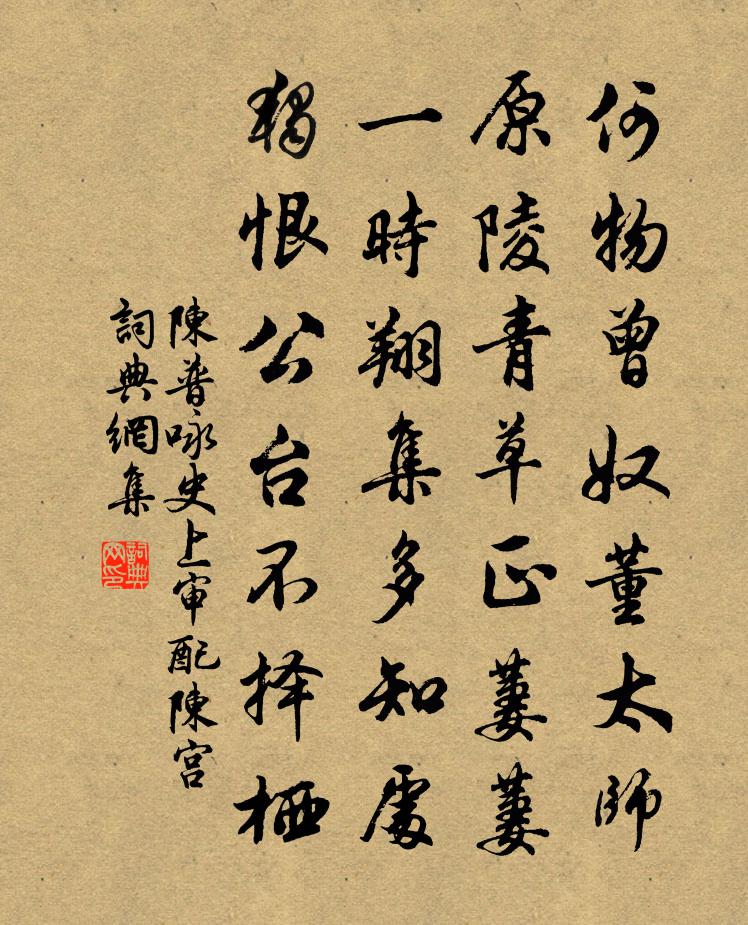 何物曾奴董太師
原陵青草正萋萋
一時翔集多知處
獨恨公台不择栖
陳普咏史上审配陳宫
詞典網集
詞典网印